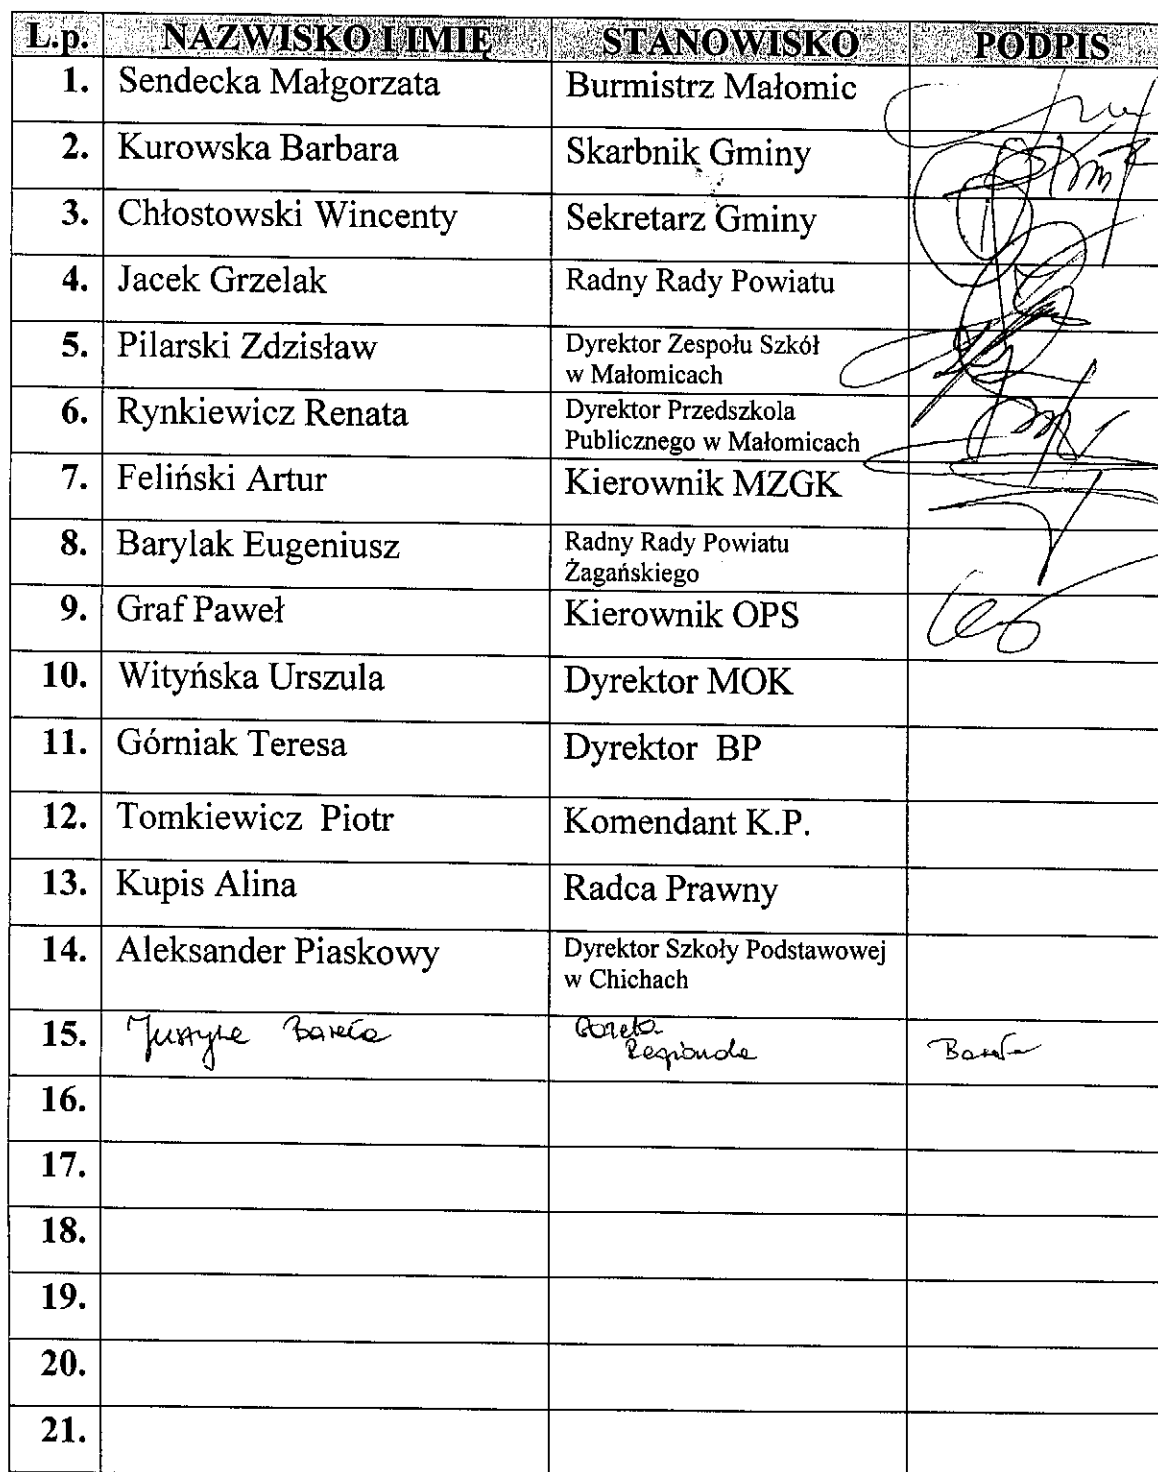 L.p. NAZWISKO I IMIĘ STANOWISKO PODPIS
1. Sendecka Małgorzata Burmistrz Małomic
2. Kurowska Barbara Skarbnik Gminy
3. Chłostowski Wincenty Sekretarz Gminy
4. Jacek Grzelak Radny Rady Powiatu
5. Pilarski Zdzisław Dyrektor Zespołu Szkół
w Małomicach
6. Rynkiewicz Renata Dyrektor Przedszkola
Publicznego w Małomicach
7. Feliński Artur Kierownik MZGK
8. Barylak Eugeniusz Radny Rady Powiatu
Żagańskiego
9. Graf Paweł Kierownik OPS
10. Wityńska Urszula Dyrektor MOK
11. Górniak Teresa Dyrektor BP
12. Tomkiewicz Piotr Komendant K.P.
13. Kupis Alina Radca Prawny
14. Aleksander Piaskowy Dyrektor Szkoły Podstawowej
w Chichach
15.
16.
17.
18.
19.
20.
21.